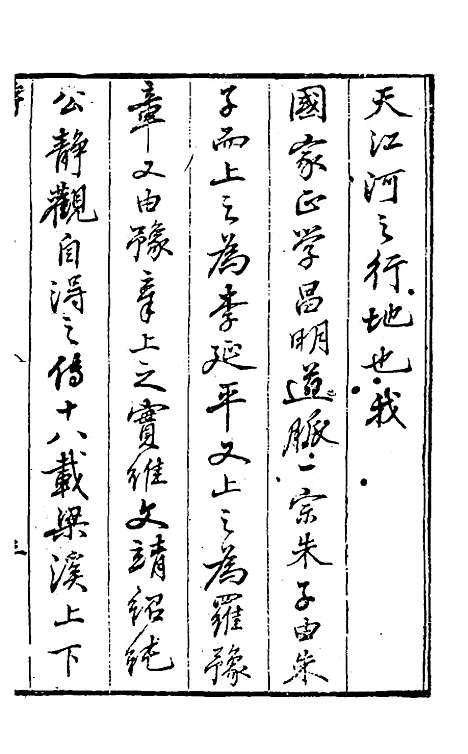 天江河之行地也我
國家正学昌明道脈一宗朱子由朱
子而上之為李延平又上之為羅豫
章又由豫章上之實維文靖紹統
公靜觀自得之傳十八載梁溪上下
序